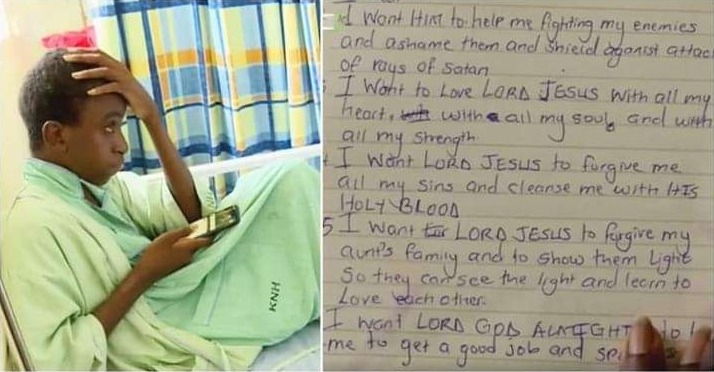 KNH
I Want HIM to help me fighting my enemies
and ashame them and shield against attac
of rays of Satan
I Want to Love LORD JESUS With all my
heart, with all my soul, and with
all my strength
I Want LORD JESUS to forgive me
all my sins and cleanse me with HIS
HOLY BLOOD
5 I Want LORD JESUS to forgive my
aunt's family and to show them Light
So they can see the light and learn to
Love each other.
I want LORD GOD ALMIGHT to
me to get a good job and